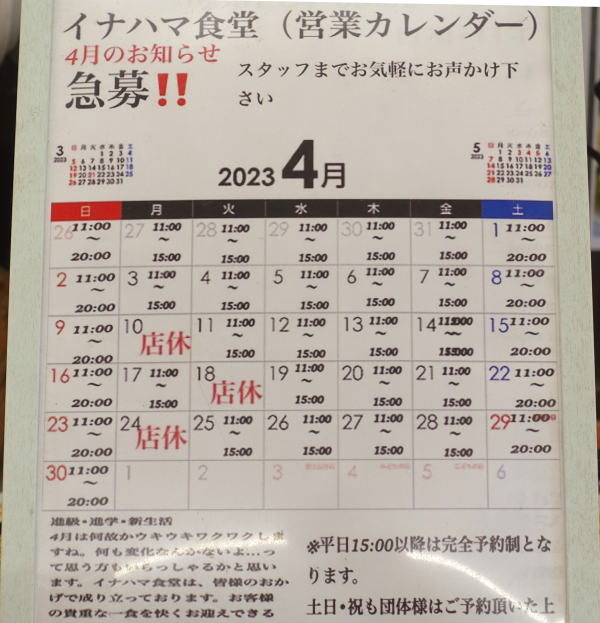 イナハマ食堂（営業カレンダー）
4月のお知らせ
急募!!
スタッフまでお気軽にお声かけ下
さい
3 2023
日 月 火 水 木 金 土
1 2 3 4
5 6 7 8 9 10 11
12 13 14 15 16 17 18
19 20 21 22 23 24 25
26 27 28 29 30 31
2023 4月
5 2023
日 月 火 水 木 金 土
1 2 3 4 5 6
7 8 9 10 11 12 13
14 15 16 17 18 19 20
21 22 23 24 25 26 27
28 29 30 31
日 月 火 水 木 金 土
26 11:00 27 11:00 28 11:00 29 11:00 30 11:00 31 11:00 1 11:00
〜 〜 〜 〜 〜 〜 〜
20:00 15:00 15:00 15:00 15:00 15:00 20:00
2 11:00 3 11:00 4 11:00 5 11:00 6 11:00 7 11:00 8 11:00
〜 〜 〜 〜 〜 〜 〜
20:00 15:00 15:00 15:00 15:00 15:00 20:00
9 11:00 10 店休 11 11:00 12 11:00 13 11:00 14 11:00 15 11:00
〜 〜 〜 〜 〜 〜
20:00 15:00 15:00 15:00 15:00 20:00
16 11:00 17 11:00 18 店休 19 11:00 20 11:00 21 11:00 22 11:00
〜 〜 〜 〜 〜 〜
20:00 15:00 15:00 15:00 15:00 20:00
23 11:00 24 店休 25 11:00 26 11:00 27 11:00 28 11:00 29 11:00
〜 〜 〜 〜 〜 〜
20:00 15:00 15:00 15:00 15:00 20:00
30 11:00 1 2 3 4 5 6
〜
20:00
進級・進学・新生活
4月は何故かウキウキワクワクしま
すね。何も変化なんかないよ…っ
て思う方もいらっしゃるかと思い
ます。イナハマ食堂は、皆様のおか
げで成り立っております。お客様
の貴重な一食を快くお迎えできる
※平日15:00以降は完全予約制とな
ります。
土日・祝も団体様はご予約頂いた上